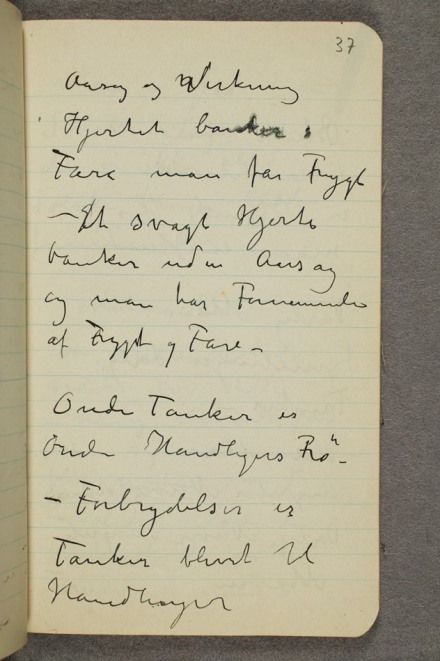 37
Aarsag og Virkning
Hjertet banker i
Fare man far Frygt
– Et svagt Hjerte
banker uden Aarsag
og man har Fornemmelse
af Frygt og Fare –
Onde Tanker er
onde Handligers Frø" –
– Forbrydelser er
Tanker blevet til
Handlinger